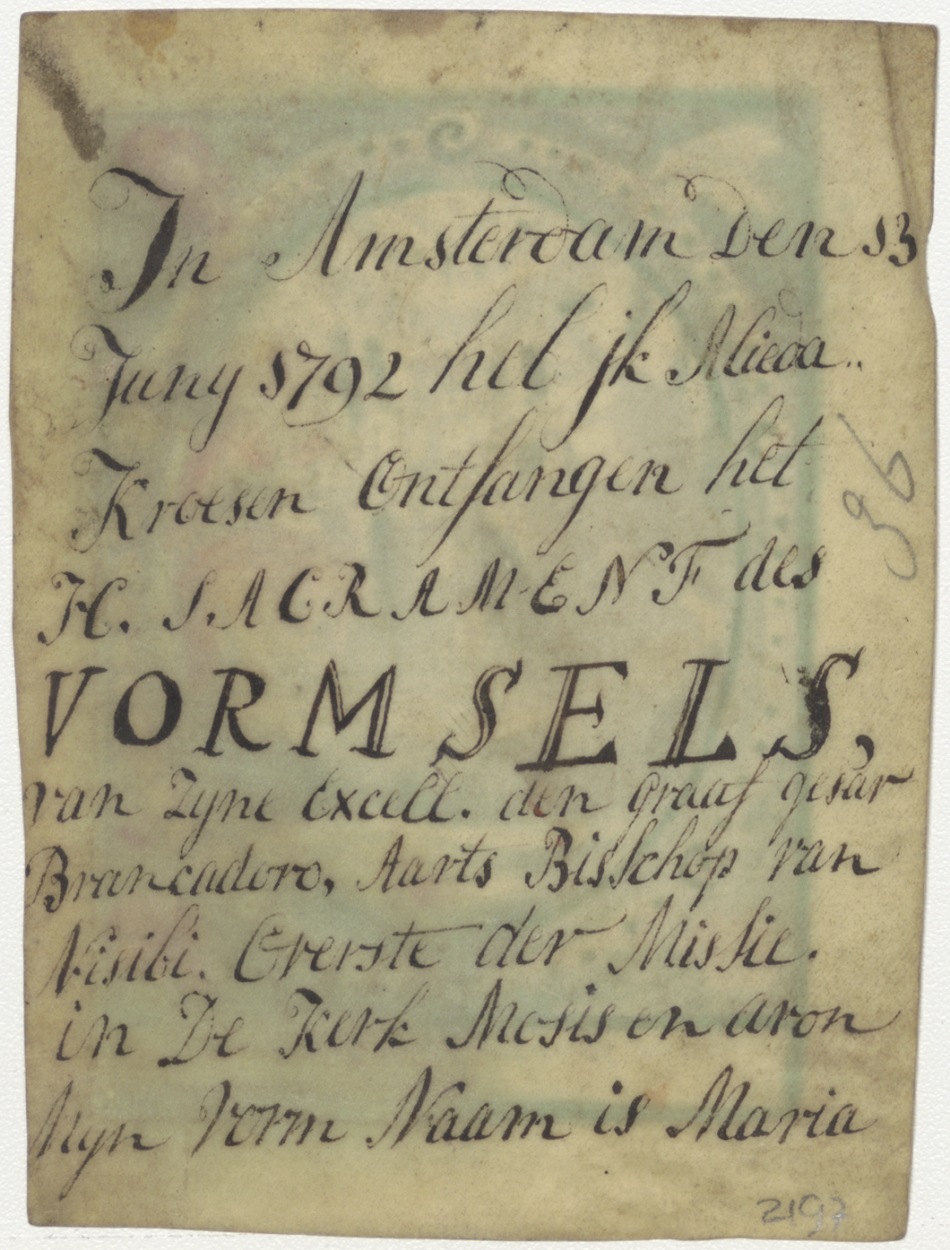 In Amsterdam Den 13
Juny 1792 heb jk Alieda..
Kroesen Ontfangen het
H. SACRAMENT des
VORMSELS,
van Zyne Excell. den graaf gesar
Brancadoro, Aarts Bisschop van
Nisibi. Overste der Missie.
in De Kerk Mosis en aron
Myn Vorm Naam is Maria
36
2197